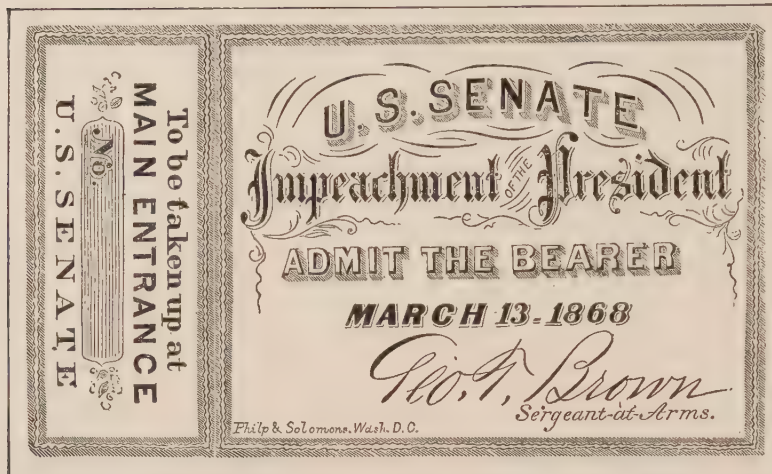 To be taken up at
MAIN ENTRANCE
No.
U.S. SENATE
U.S. SENATE
Impeachment OF THE President
ADMIT THE BEARER
MARCH 13-1868
Geo. T. Brown
Sergeant-at-Arms.
Philp & Solomons. Wash. D.C.